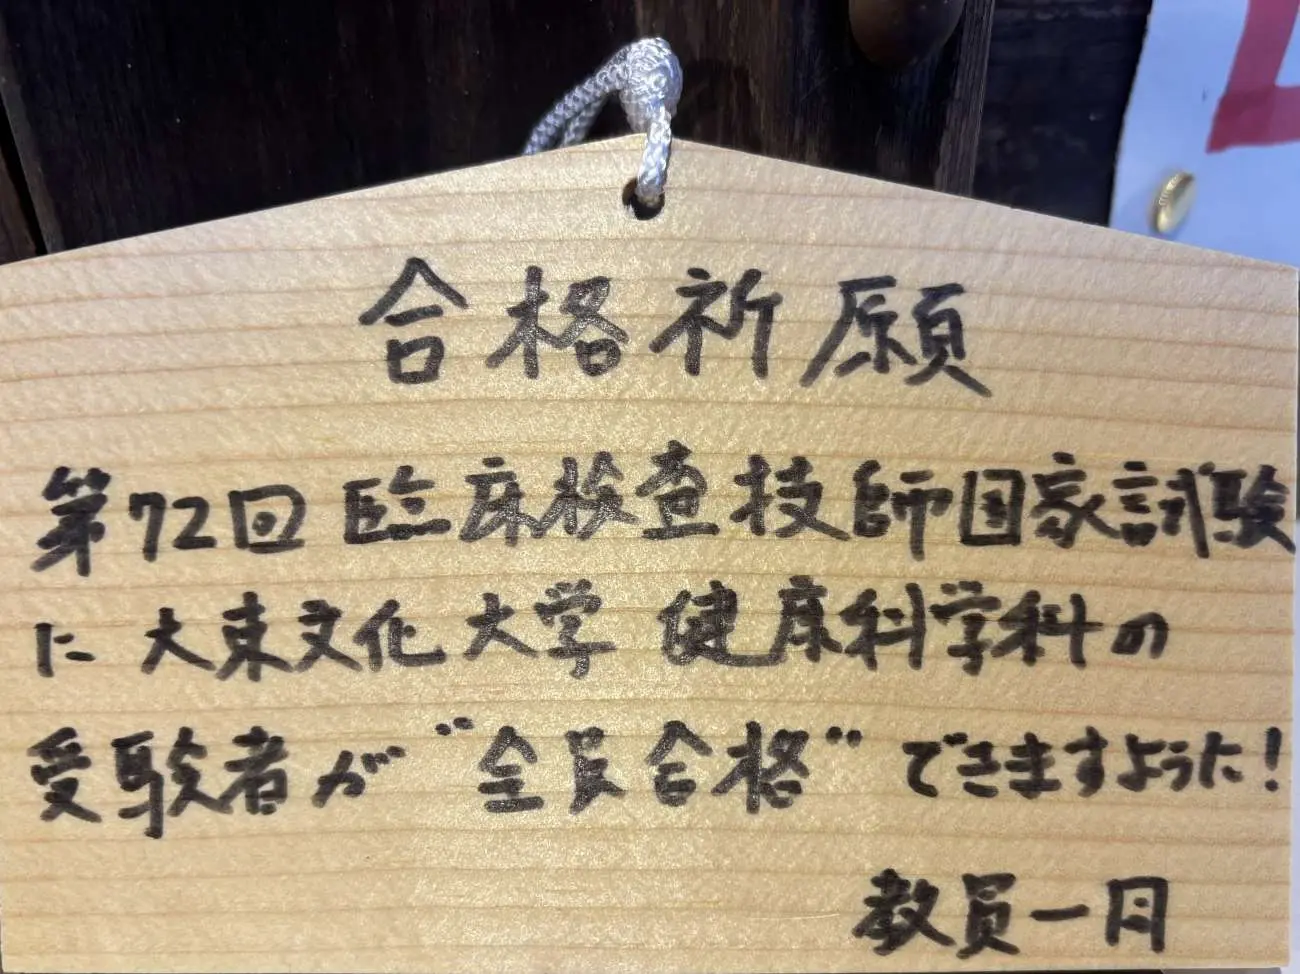 合格祈願
第72回 臨床検査技師国家試験
に 大東文化大学 健康科学科の
受験者が “全員合格” できますように!
教員一同